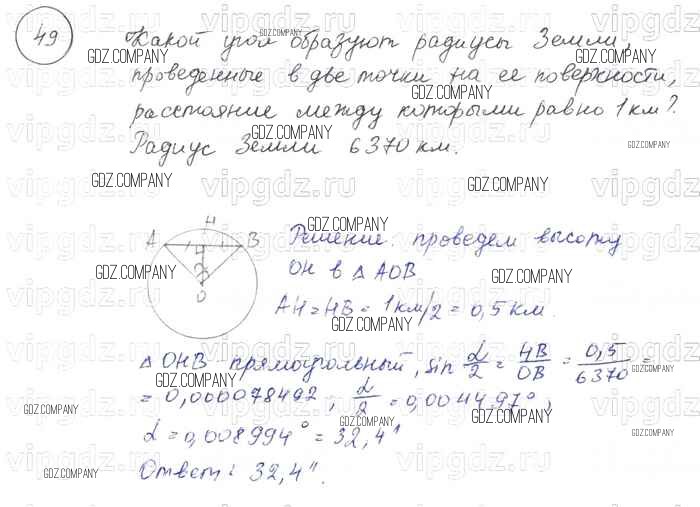 49
Какой угол образуют радиусы Земли,
проведенные в две точки на ее поверхности,
расстояние между которыми равно 1 км?
Радиус Земли 6370 км.
H
A B
O
Решение: проведем высоту
OH в △ AOB
AH = HB = 1 км/2 = 0,5 км.
△ OHB - прямоугольный, sin α/2 = HB/OB = 0,5/6370 =
= 0,0000078492 ; α/2 = 0,004497° ,
α = 0,008994° = 32,4"
Ответ: 32,4".
GDZ.COMPANY
vipgdz.ru